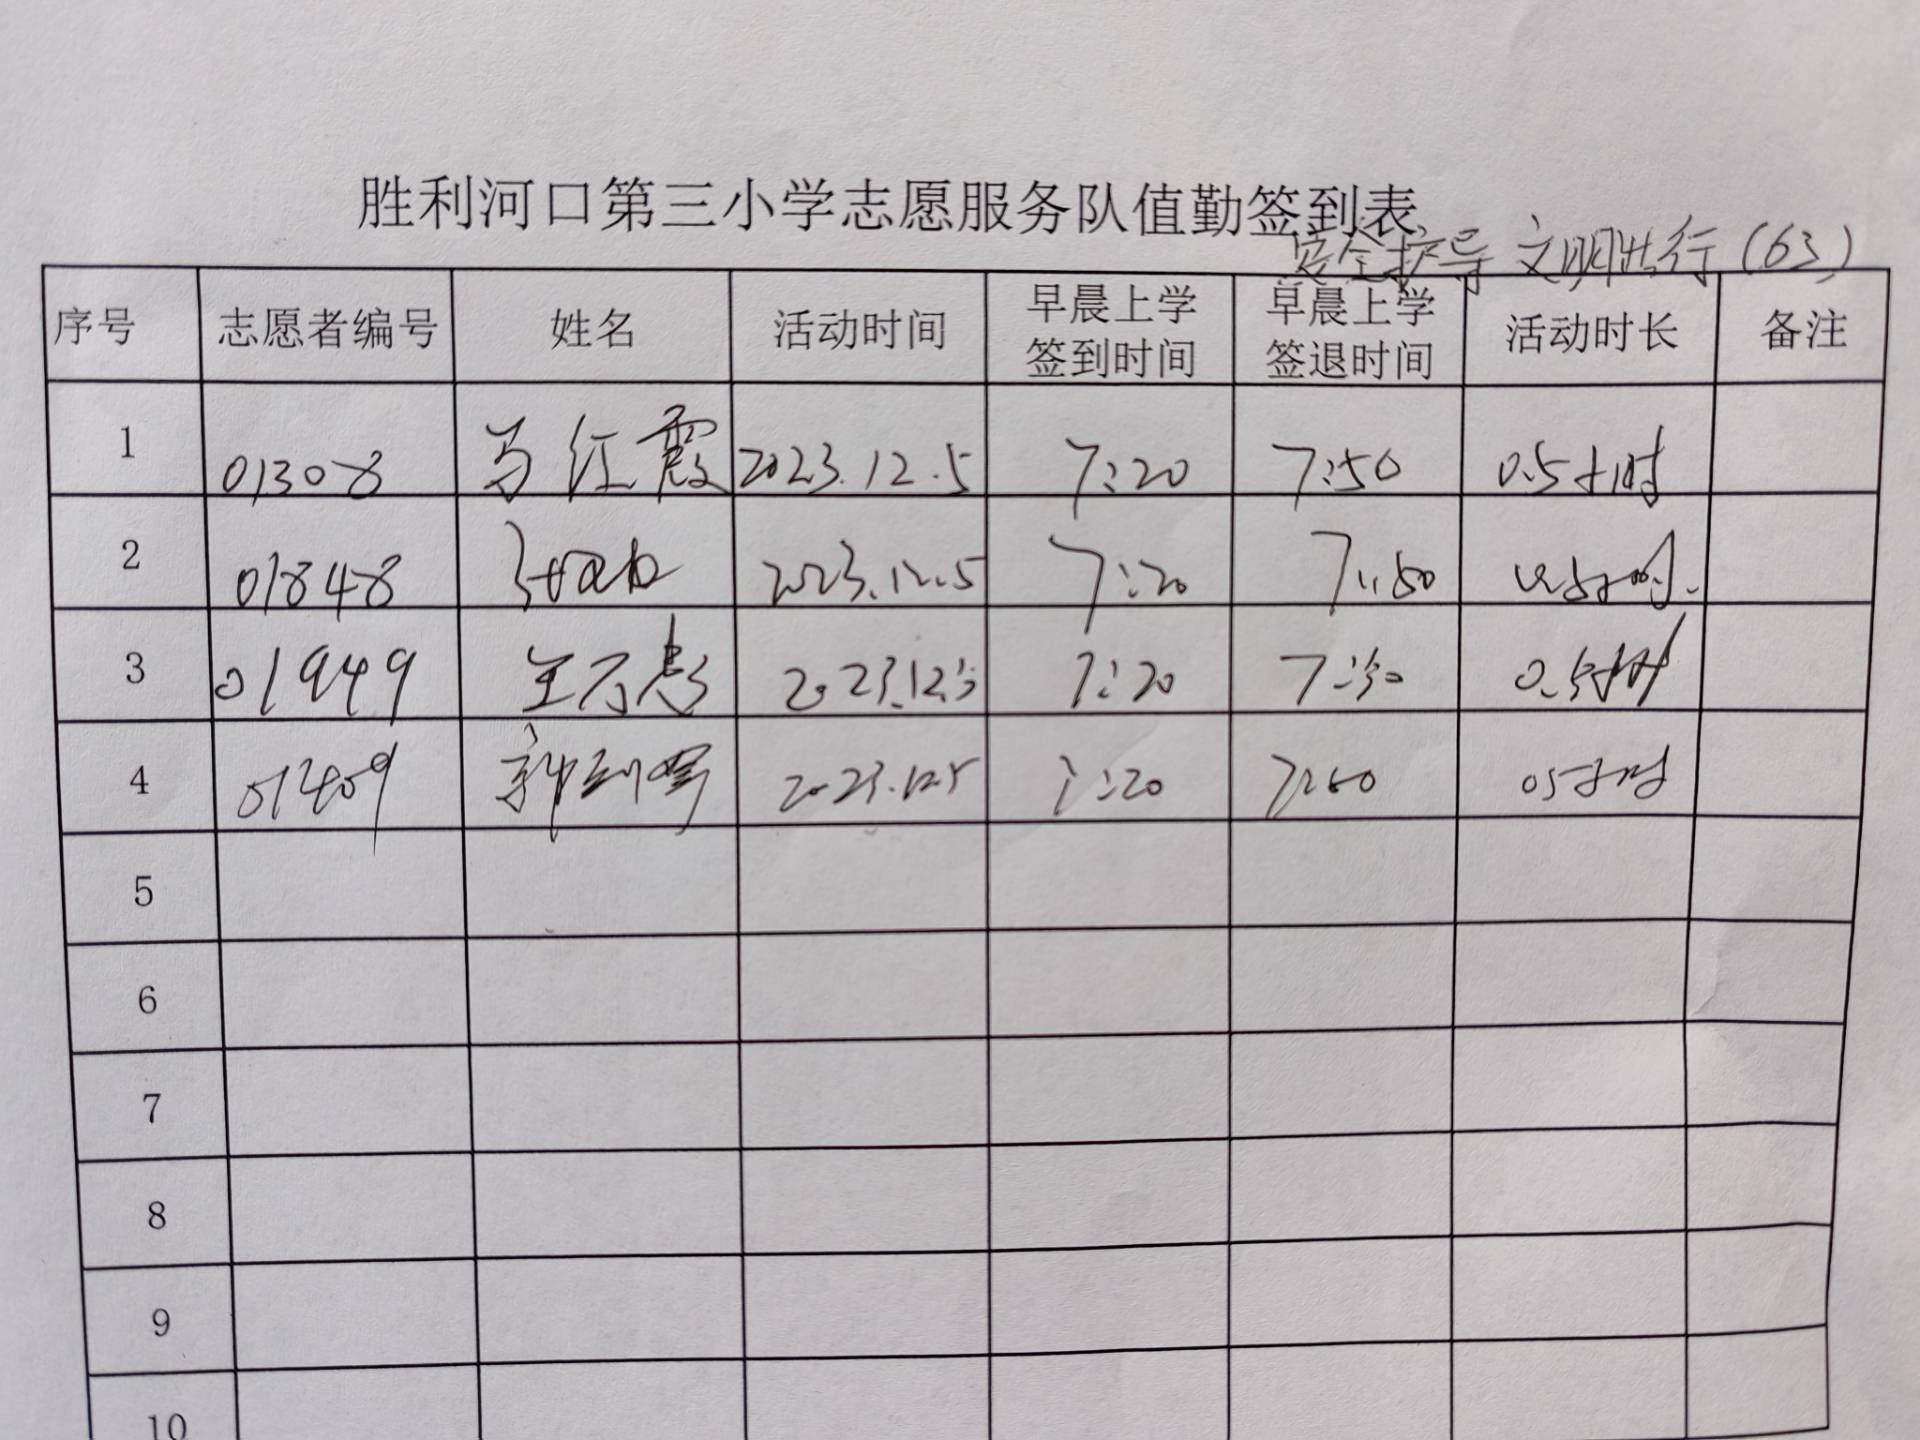 胜利河口第三小学志愿服务队值勤签到表
安全护导 文明出行(63)
序号 志愿者编号 姓名 活动时间 早晨上学签到时间 早晨上学签退时间 活动时长 备注
1 01308 马红霞 2023.12.5 7:20 7:50 0.5小时
2 01848 2023.12.5 7:20 7:50 0.5小时
3 01949 王 2023.12.5 7:20 7:50 0.5小时
4 01409 郭 2023.12.5 7:20 7:50 0.5小时
5
6
7
8
9
10